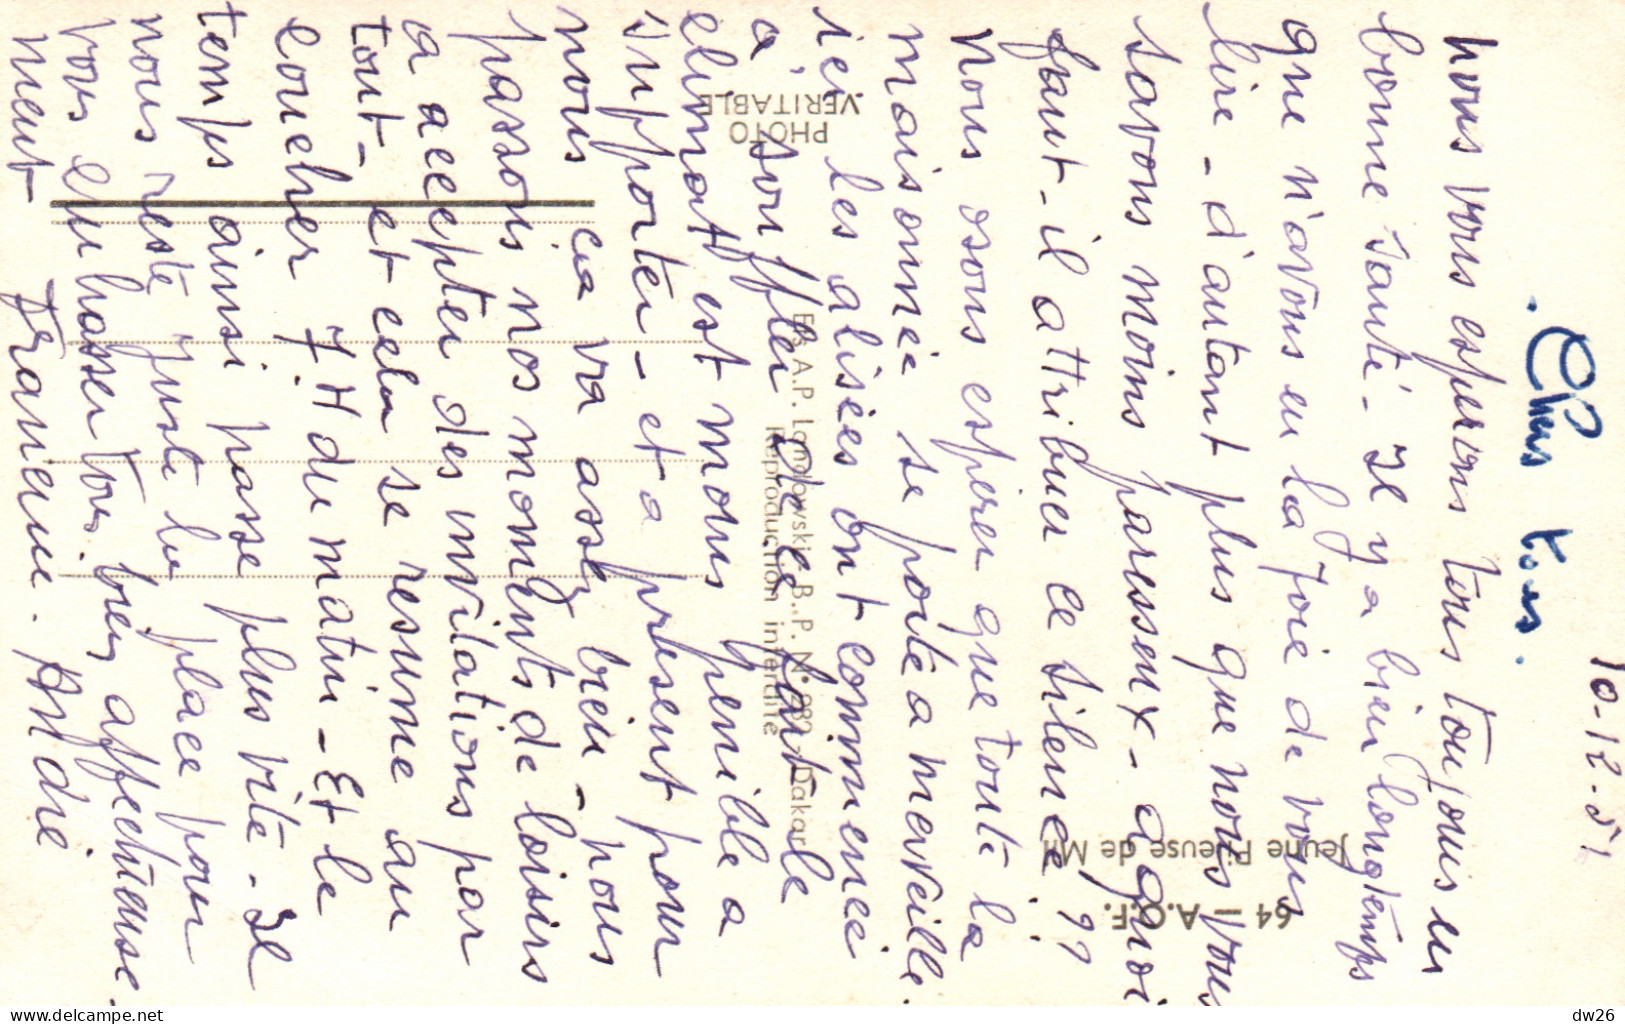 10-12-51
Chers Tous.
nous vous esperons tous toujours en
bonne santé - Il y a bien longtemps
que n'avons eu la joie de vous
lire - d'autant plus que nous vous
savons moins paresseux - a quoi
faut-il attribuer ce silence ??
Nous osons esperer que toute la
maisonnée se porte a merveille.
ici les alisées ont commencé
a souffler de ce fait le
climat est moins penible a
supporter - et a present pour
nous cia va assez bien - nous
passons nos moments de loisirs
a accepter des invitations par
tout - et cela se resume au
coucher 7 H du matin - Et le
temps ainsi passe plus vite - Il
nous reste juste la place pour
vous embrasser tous bien affectueuse-
ment
Francine. André
64 — A.O.F.
Jeune Pileuse de Mil
PHOTO
VÉRITABLE
Ets A.P. Landowski - B.P. N° 982 - Dakar
Reproduction interdite
dw26